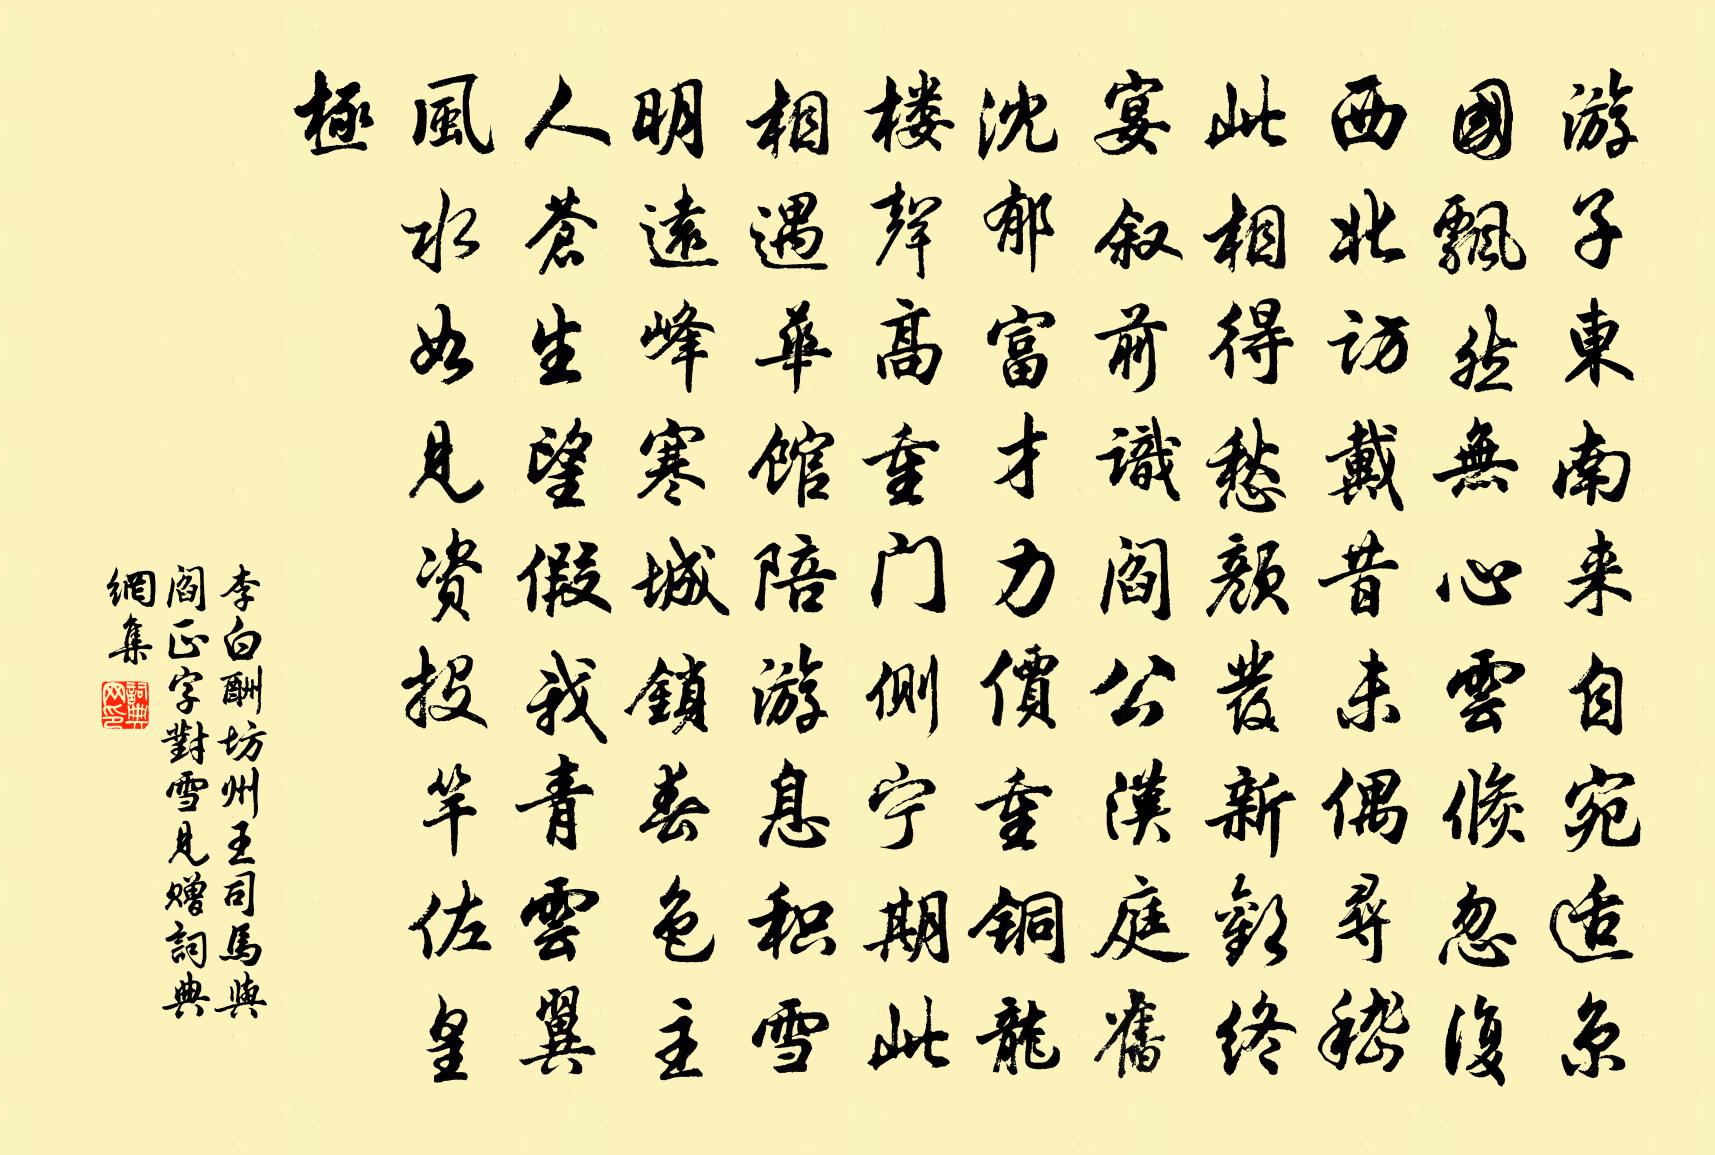 游子東南来自宛适京
國飄然無心雲倏忽復
西北訪戴昔未偶尋嵇
此相得愁顏發新歡終
宴叙前識閻公漢庭舊
沈郁富才力價重銅龍
楼聲高重门側宁期此
相遇華館陪游息积雪
明遠峰寒城鎖春色主
人蒼生望假我青雲翼
風水如見资投竿佐皇
極
李白酬坊州王司馬與
閻正字對雪見赠詞典
網集
詞典网印